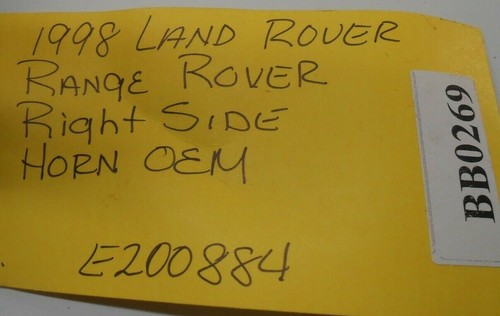 1998 LAND ROVER
RANGE ROVER
Right SIDE
HORN OEM
E200884
BB0269